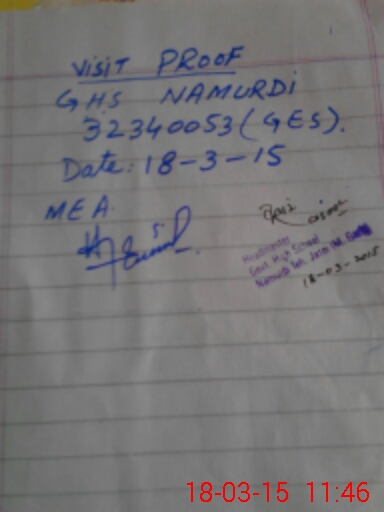 VISIT PROOF
GHS NAMURDI
32340053(GES).
Date: 18-3-15
MEA
Headmaster
Govt. High School
Namurdi Teh. Jatoi
18-03-2015
18-03-15 11:46